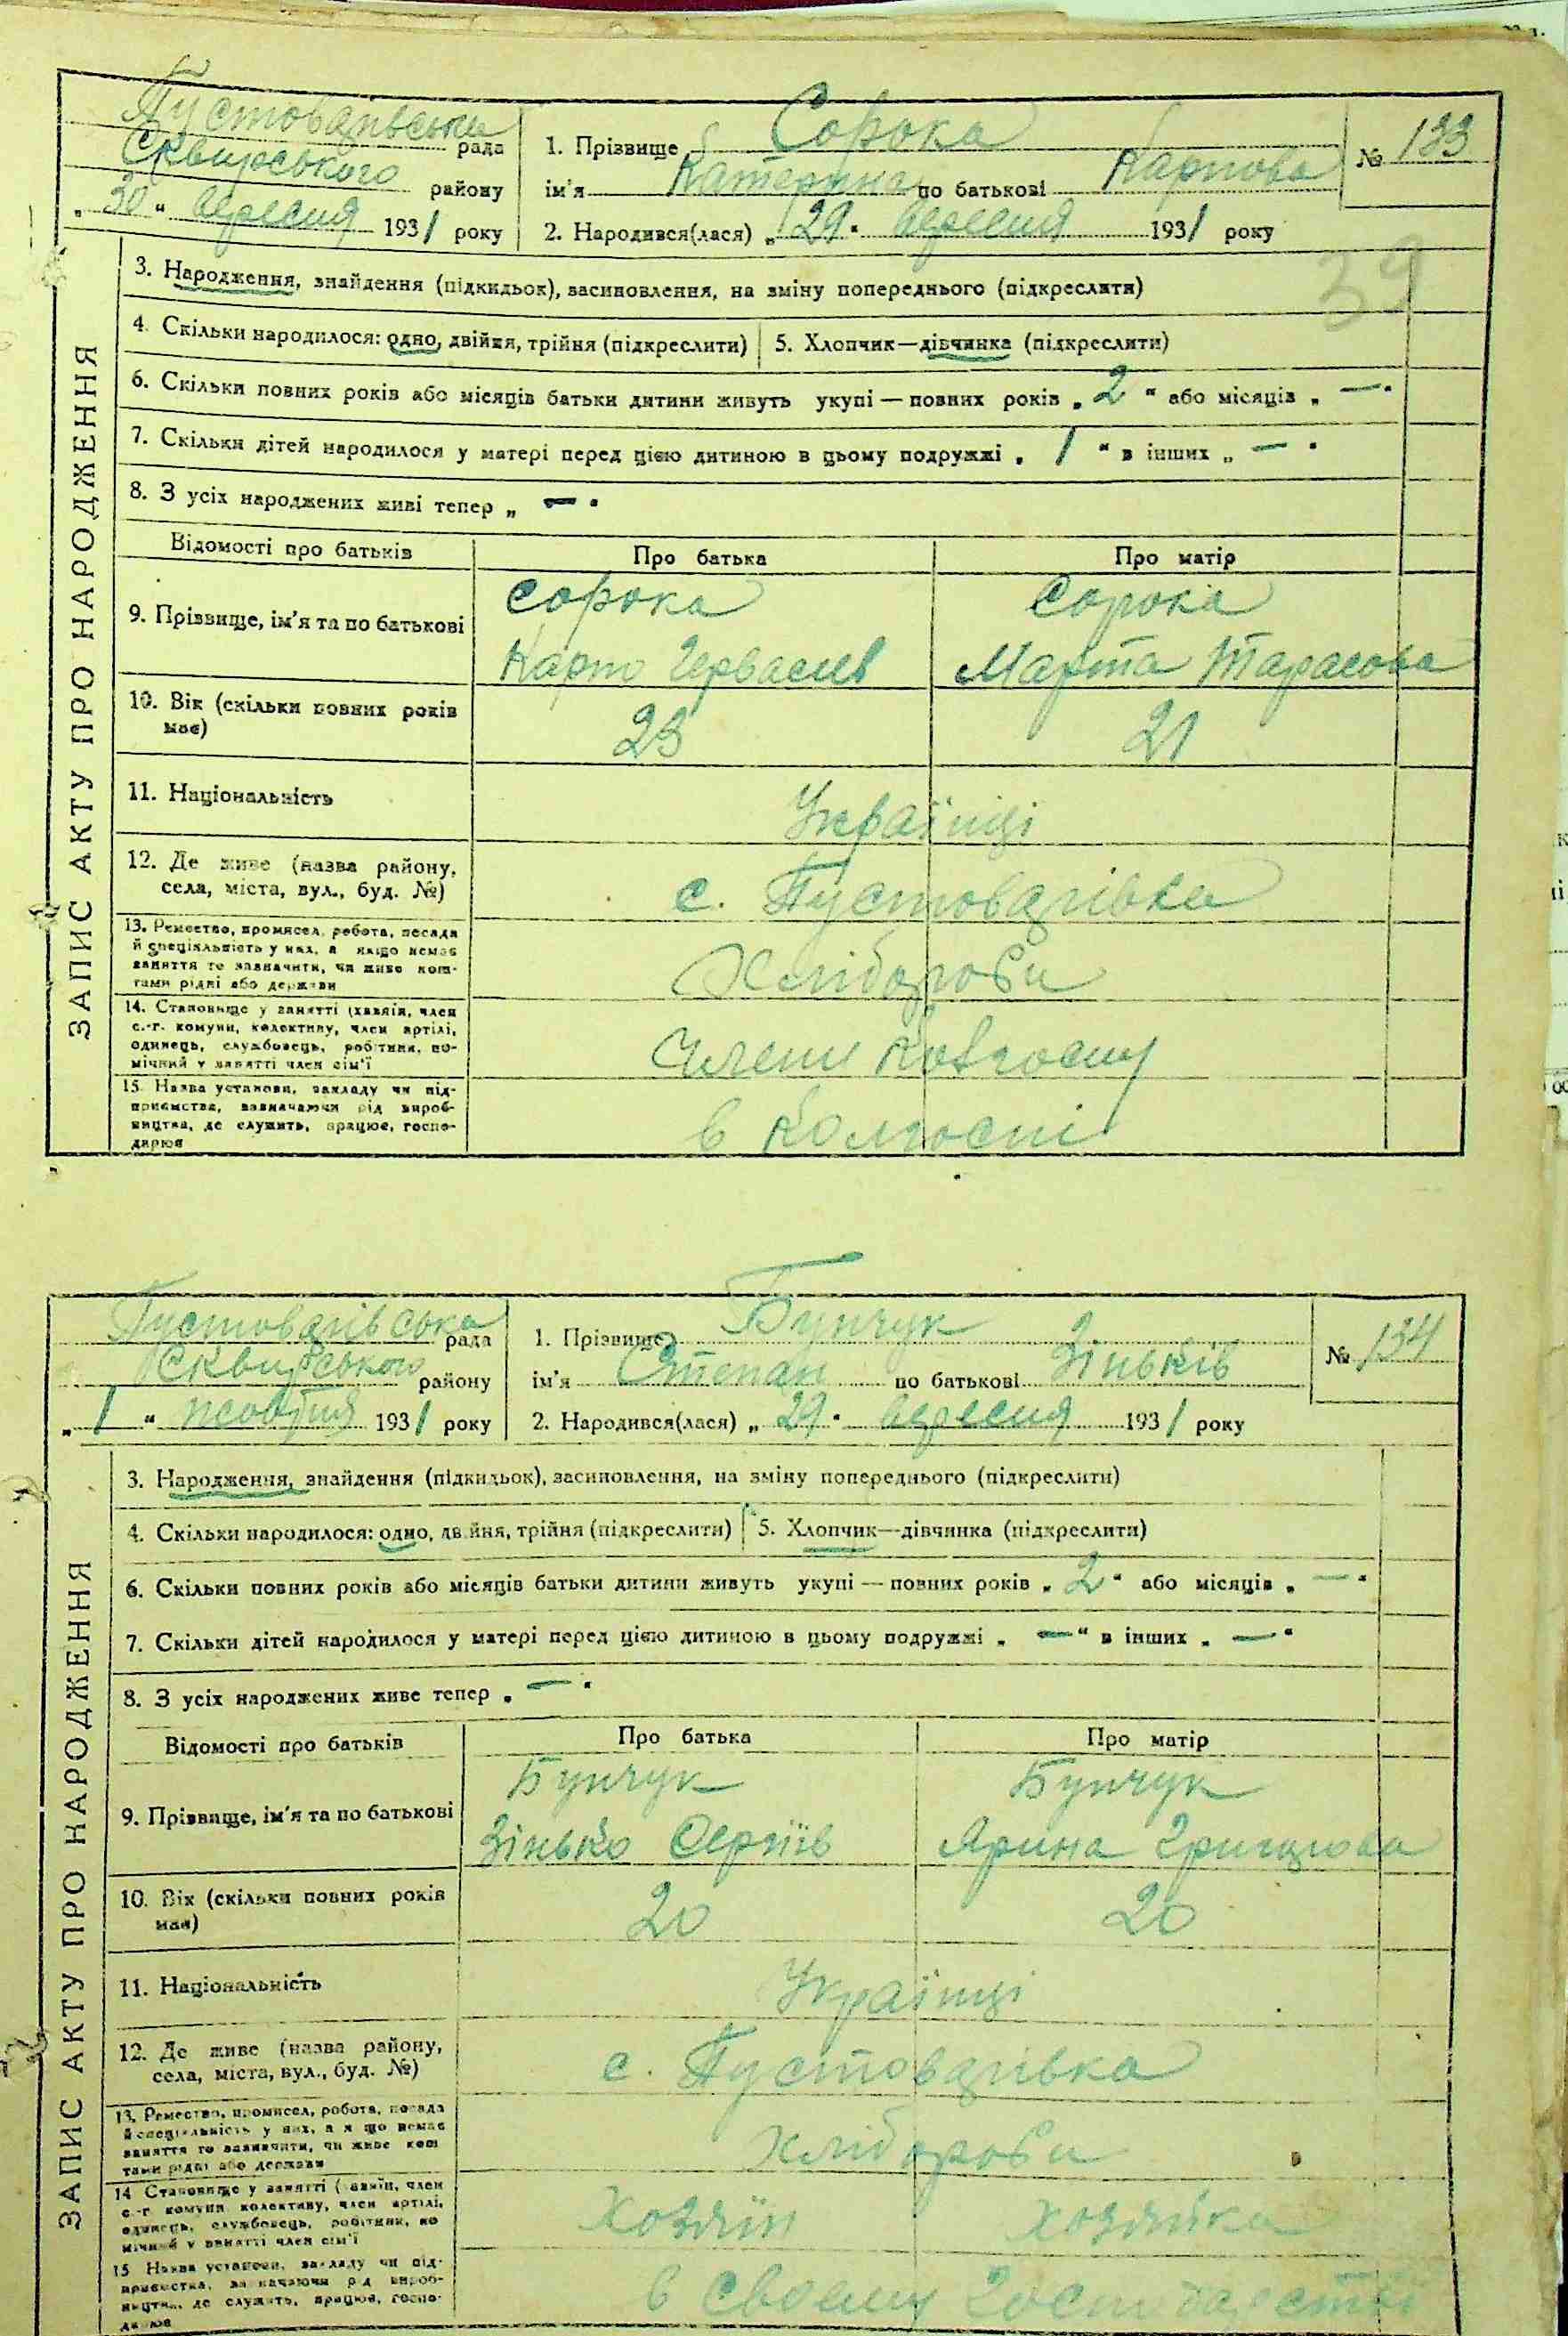 Пустоварівська рада
Сквирського району
„ 30 “ вересня 1931 року
1. Прізвище Сорока
ім'я Катерина по батькові Карпова
2. Народився(лася) „ 29 “ вересня 1931 року
№ 133
39
ЗАПИС АКТУ ПРО НАРОДЖЕННЯ
3. Народження, знайдення (підкидьок), засиновлення, на зміну попереднього (підкреслити)
4. Скільки народилося: одно, двійня, трійня (підкреслити) 5. Хлопчик—дівчинка (підкреслити)
6. Скільки повних років або місяців батьки дитини живуть укупі — повних років „ 2 “ або місяців „ — “
7. Скільки дітей народилося у матері перед цією дитиною в цьому подружжі „ 1 “ в інших „ — “
8. З усіх народжених живі тепер „ — “
Відомості про батьків Про батька Про матір
9. Прізвище, ім'я та по батькові
Сорока Сорока
Карпо Гервасиів Марта Тарасова
10. Вік (скільки повних років
має)
23 21
11. Національність
Українці
12. Де живе (назва району,
села, міста, вул., буд. №)
с. Пустоварівка
13. Ремество, промисел, робота, посада
й спеціяльність у них, а якщо немає
заняття то зазначити, чи живе кош-
тами рідні або держави
Хлібороби
14. Становище у занятті (хазяїн, член
с.-г. комуни, колективу, член артілі,
одинець, службовець, робітник, по-
мічний у занятті член сім'ї
Члени Колгоспу
15. Назва установи, закладу чи під-
приємства, зазначаючи рід вироб-
ництва, де служить, працює, госпо-
дарює
в Колгоспі
Пустоварівська рада
Сквирського району
„ 1 “ жовтня 1931 року
1. Прізвище Бунчук
ім'я Степан по батькові Зіньків
2. Народився(лася) „ 29 “ вересня 1931 року
№ 134
ЗАПИС АКТУ ПРО НАРОДЖЕННЯ
3. Народження, знайдення (підкидьок), засиновлення, на зміну попереднього (підкреслити)
4. Скільки народилося: одно, двійня, трійня (підкреслити) 5. Хлопчик—дівчинка (підкреслити)
6. Скільки повних років або місяців батьки дитини живуть укупі — повних років „ 2 “ або місяців „ — “
7. Скільки дітей народилося у матері перед цією дитиною в цьому подружжі „ — “ в інших „ — “
8. З усіх народжених живе тепер „ — “
Відомості про батьків Про батька Про матір
9. Прізвище, ім'я та по батькові
Бунчук Бунчук
Зінько Сергіїв Ярина Грицкова
10. Вік (скільки повних років
має)
20 20
11. Національність
Українці
12. Де живе (назва району,
села, міста, вул., буд. №)
с. Пустоварівка
13. Ремество, промисел, робота, посада
й спеціяльність у них, а якщо немає
заняття то зазначити, чи живе кош
тами рідні або держави
Хлібороби
14 Становище у занятті (хазяїн, член
с.-г. комуни колективу, член артілі,
одинець, службовець, робітник, по
мічний у занятті член сім'ї
Хозяїн Хозяйка
15 Назва установи, закладу чи під-
приємства, зазначаючи рід вироб-
ництва, де служить, працює, госпо-
дарює
в своєму господарстві